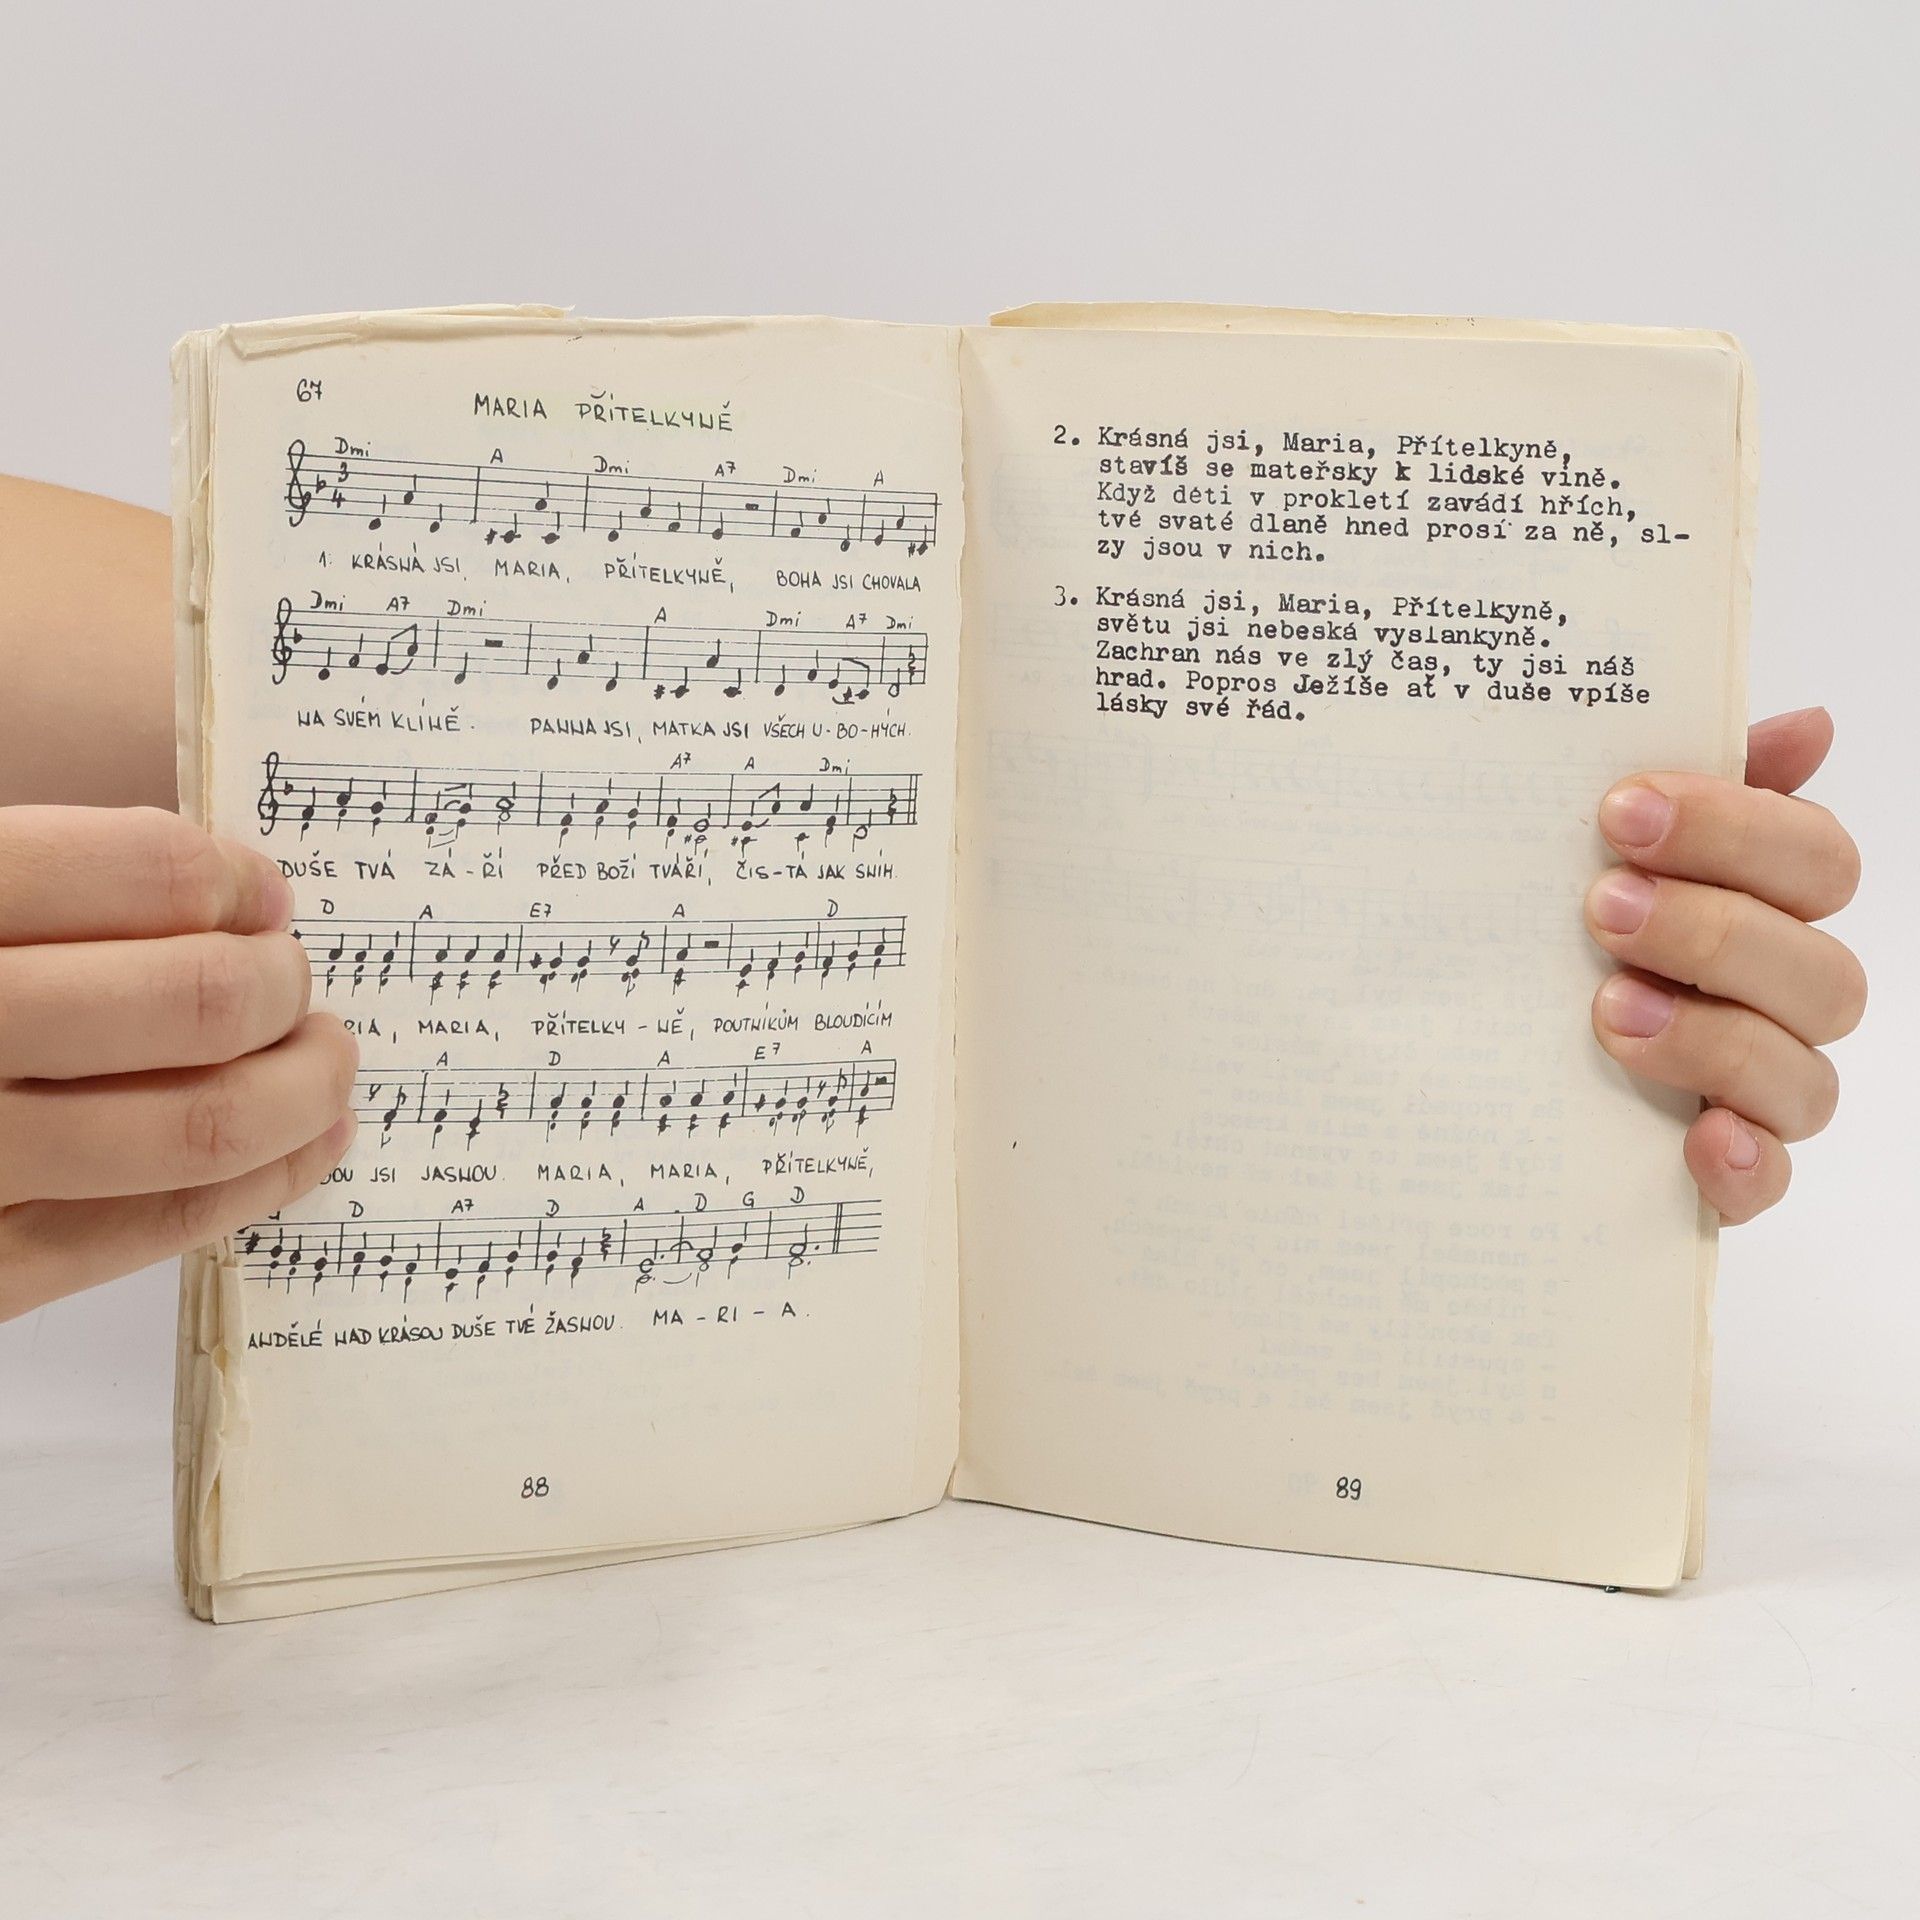 67
MARIA PŘÍTELKYNĚ
Dmi A Dmi A7 Dmi A
3
4
1. KRÁSNÁ JSI, MARIA, PŘÍTELKYNĚ, BOHA JSI CHOVALA
Dmi A7 Dmi A Dmi A7 Dmi
NA SVÉM KLÍNĚ. PANNA JSI, MATKA JSI VŠECH U-BO-HÝCH.
A7 A Dmi
DUŠE TVÁ ZÁ-ŘÍ PŘED BOŽÍ TVÁŘÍ, ČIS-TÁ JAK SNÍH.
D A E7 A D
MARIA, PŘÍTELKY-NĚ, POUTNÍKŮM BLOUDÍCÍM
A D A E7 A
JSI JASNOU. MARIA, MARIA, PŘÍTELKYNĚ,
D A7 D A D G D
ANDĚLÉ NAD KRÁSOU DUŠE TVÉ ŽASNOU. MA-RI-A.
88
2. Krásná jsi, Maria, Přítelkyně,
stavíš se mateřsky k lidské vině.
Když děti v prokletí zavádí hřích,
tvé svaté dlaně hned prosí za ně, sl-
zy jsou v nich.
3. Krásná jsi, Maria, Přítelkyně,
světu jsi nebeská vyslankyně.
Zachran nás ve zlý čas, ty jsi náš
hrad. Popros Ježíše ať v duše vpíše
lásky své řád.
89